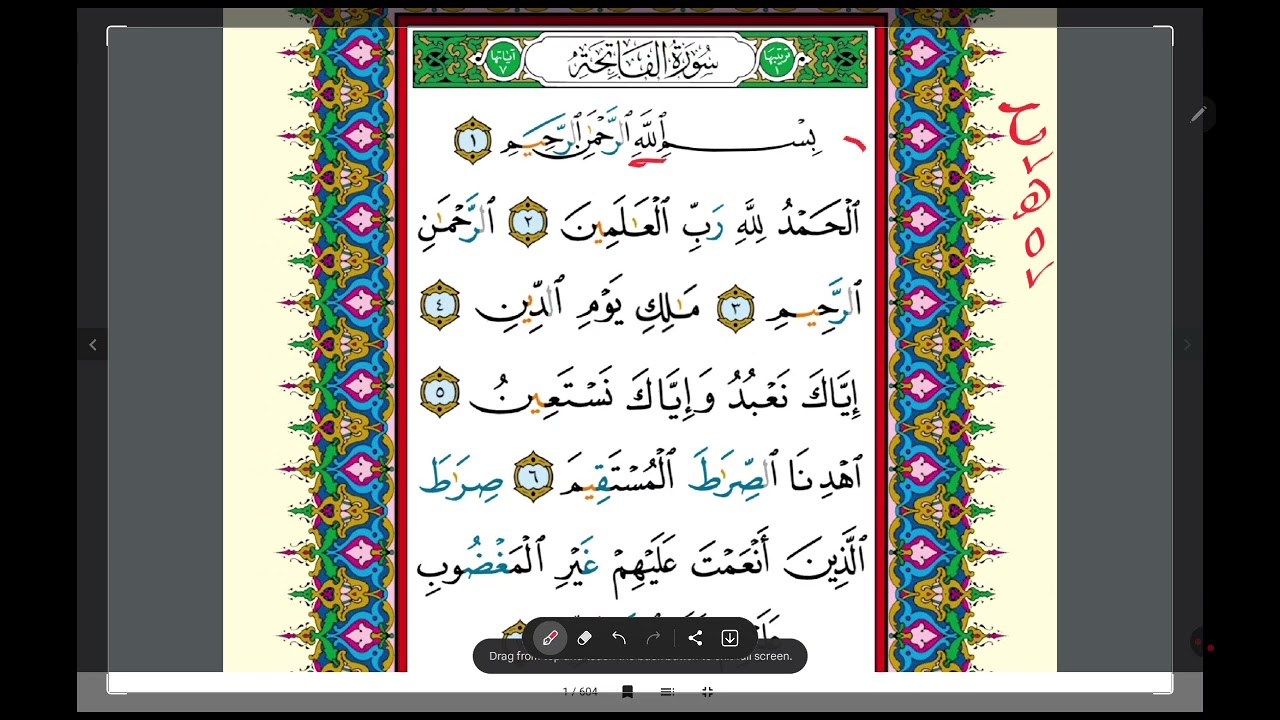 ترتيبها ١ سُورَةُ الْفَاتِحَةِ آياتها ٧
بِسْمِ ٱللَّهِ ٱلرَّحْمَٰنِ ٱلرَّحِيمِ ١
ٱلْحَمْدُ لِلَّهِ رَبِّ ٱلْعَٰلَمِينَ ٢ ٱلرَّحْمَٰنِ
ٱلرَّحِيمِ ٣ مَٰلِكِ يَوْمِ ٱلدِّينِ ٤
إِيَّاكَ نَعْبُدُ وَإِيَّاكَ نَسْتَعِينُ ٥
ٱهْدِنَا ٱلصِّرَٰطَ ٱلْمُسْتَقِيمَ ٦ صِرَٰطَ
ٱلَّذِينَ أَنْعَمْتَ عَلَيْهِمْ غَيْرِ ٱلْمَغْضُوبِ
1 / 604